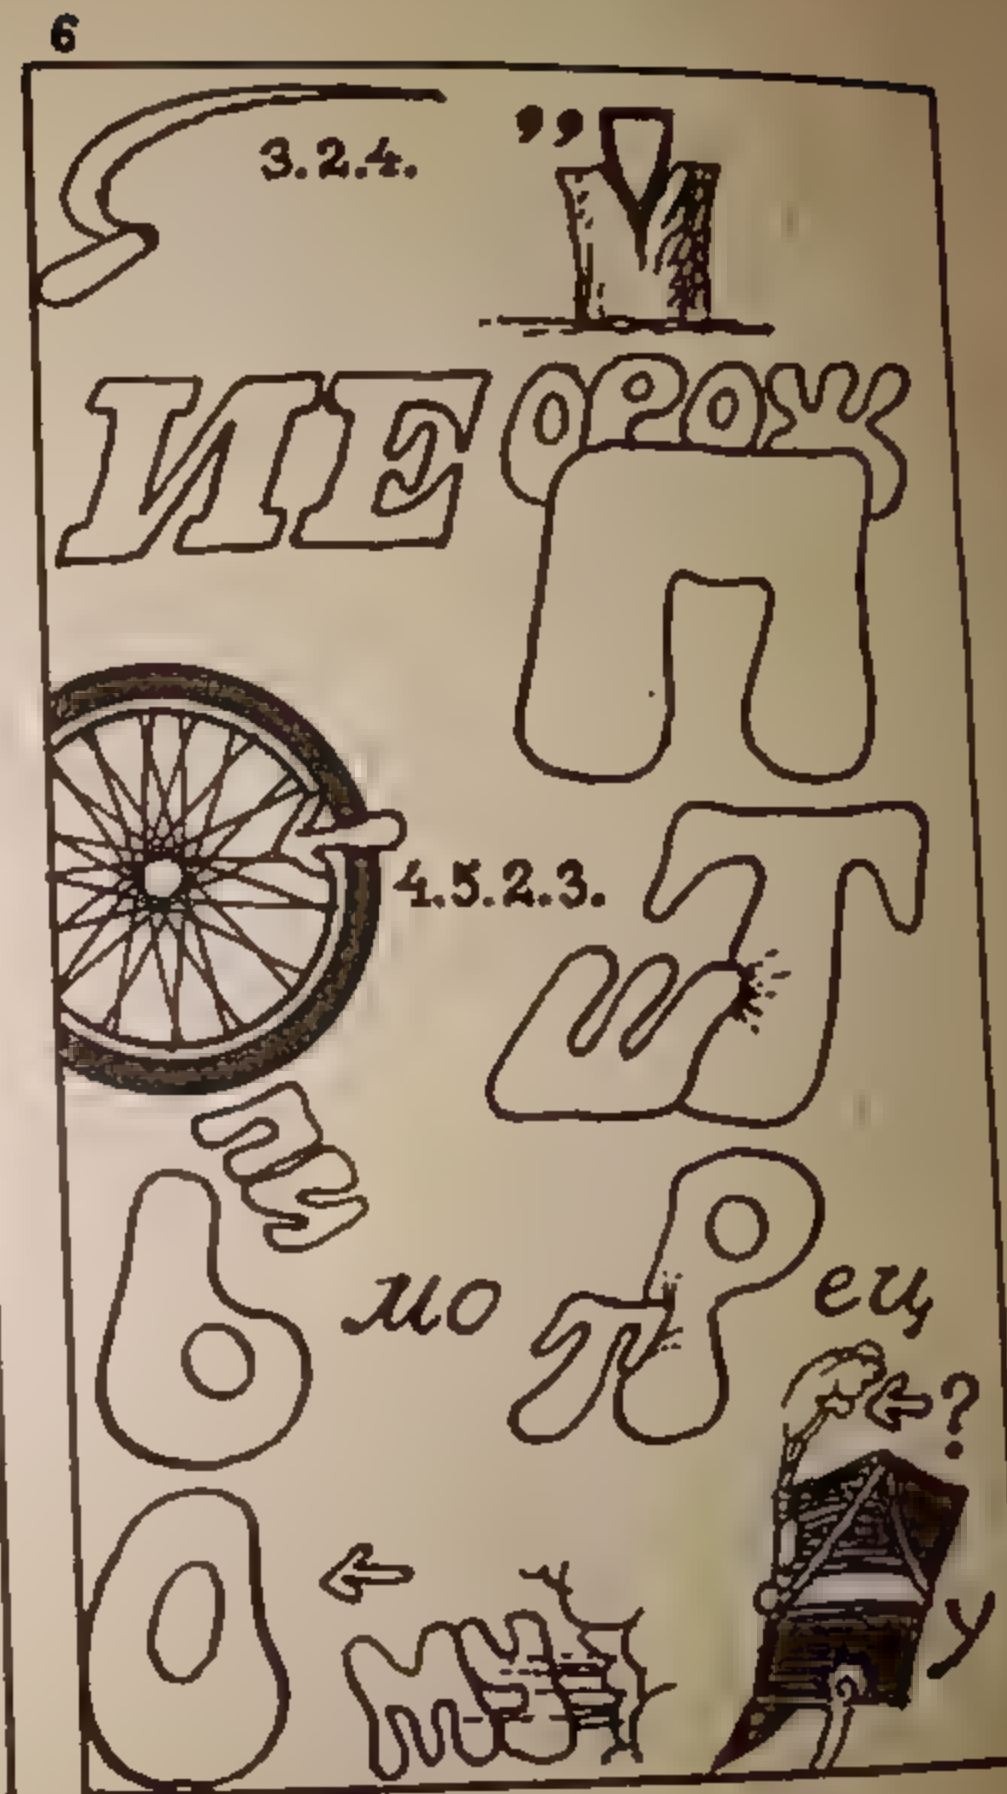 6
3.2.4.
,,
ИЕ
ОРОЖ
П
4.5.2.3.
Т
Ш
Ь
мо
Р
П
ец
?
О
У